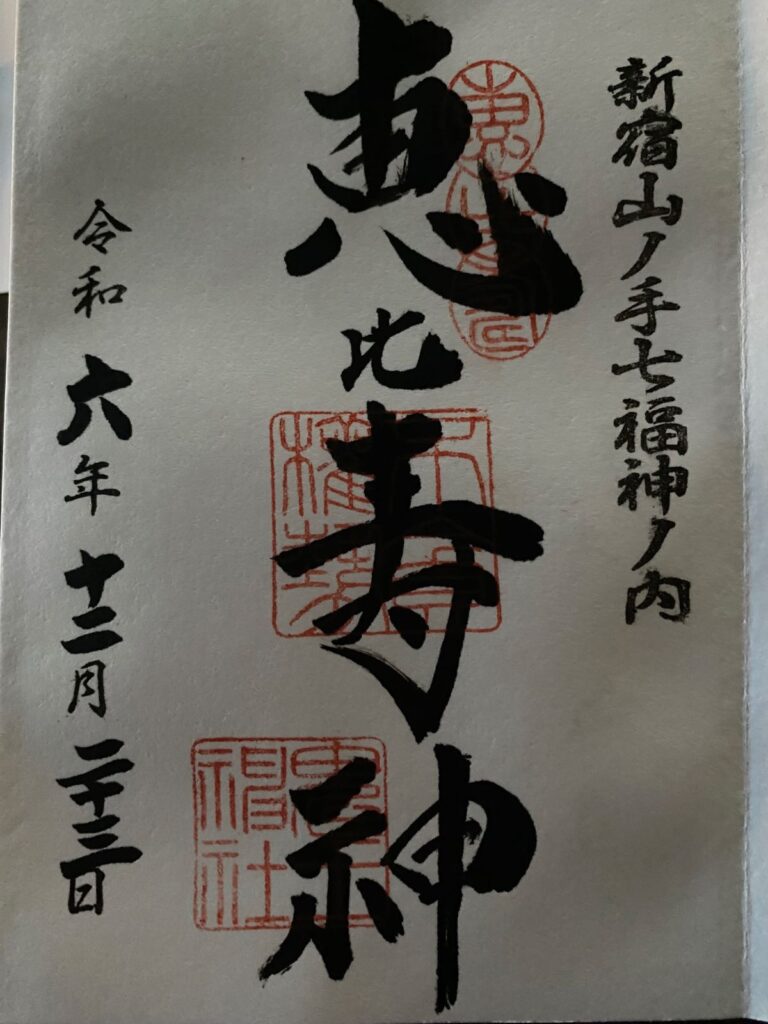 新宿山ノ手七福神ノ内
恵比寿神
令和六年十二月二十三日